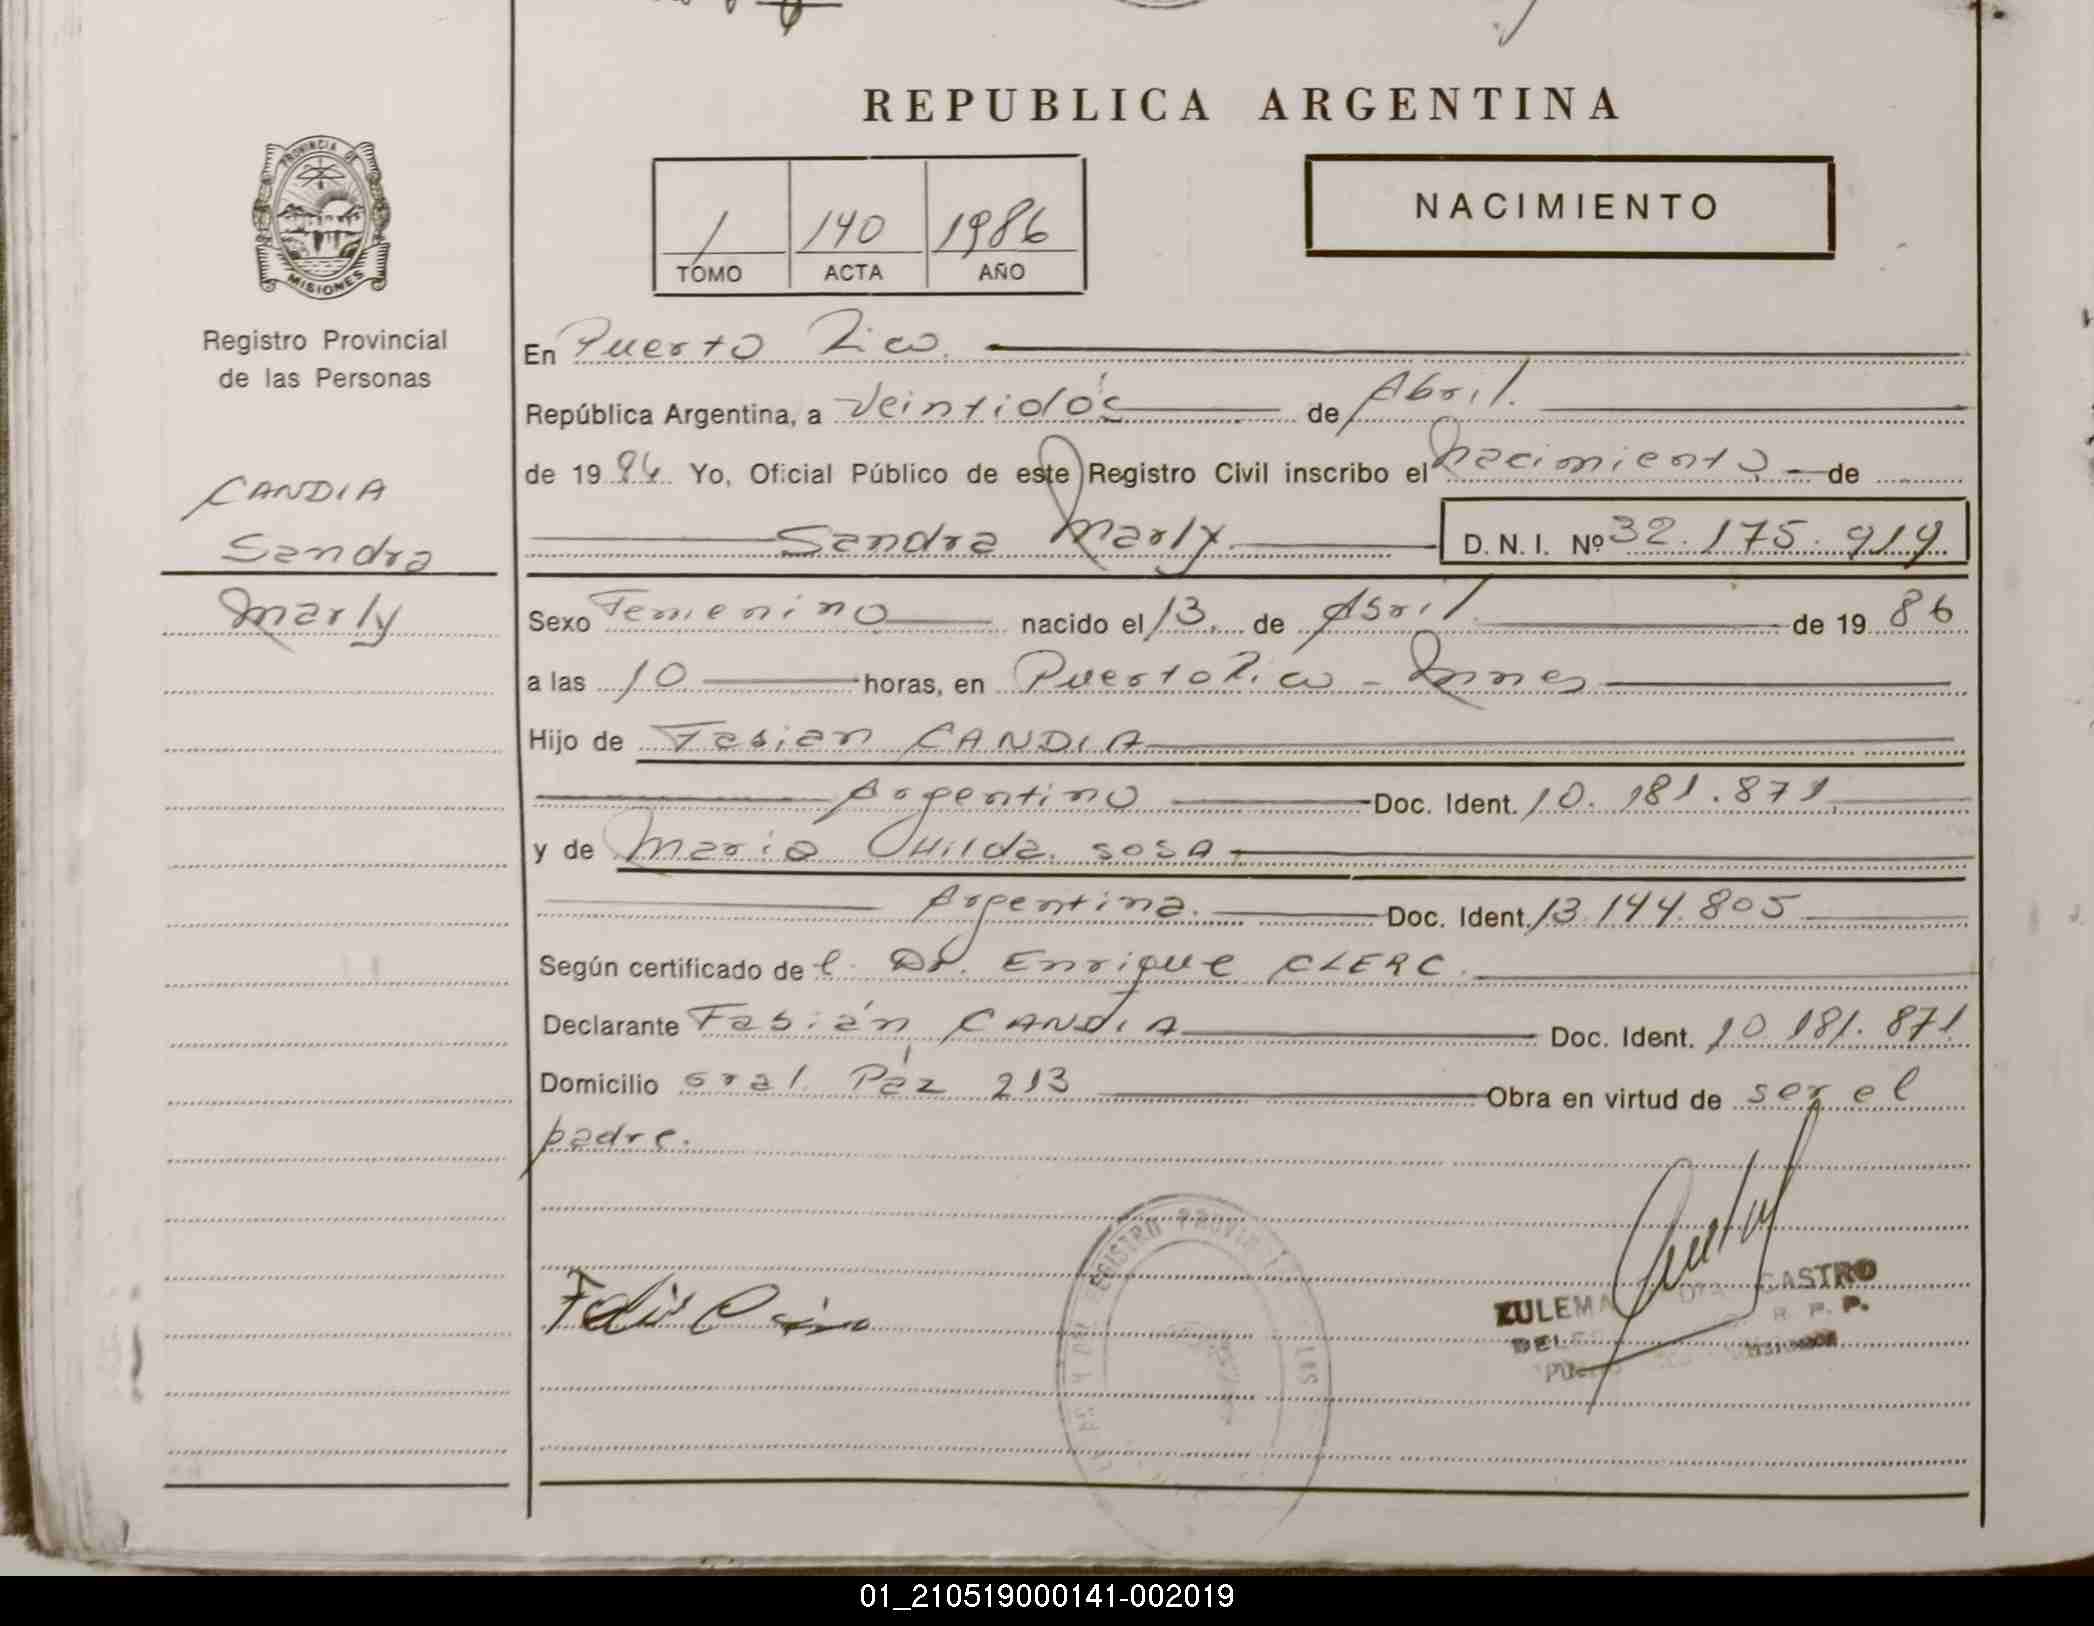 REPUBLICA ARGENTINA
PROVINCIA DE
MISIONES
Registro Provincial
de las Personas
1 140 1986
TOMO ACTA AÑO
NACIMIENTO
CANDIA
Sandra
Marly
En Puerto Rico
República Argentina, a veintidós de Abril.
de 19 86 Yo, Oficial Público de este Registro Civil inscribo el nacimiento de
Sandra Marly D. N. I. Nº 32.175.919
Sexo Femenino nacido el 13 de Abril de 19 86
a las 10 horas, en Puerto Rico - Mnes
Hijo de Fabian CANDIA
Argentino Doc. Ident. 10.181.871
y de Maria Hilda SOSA
Argentina. Doc. Ident. 13.144.805
Según certificado de l. Dr. Enrique CLERC.
Declarante Fabián CANDIA Doc. Ident. 10.181.871
Domicilio Gral. Páz 213 Obra en virtud de ser el
padre.
REGISTRO
ZULEMA CASTRO
R. P. P.
01_210519000141-002019